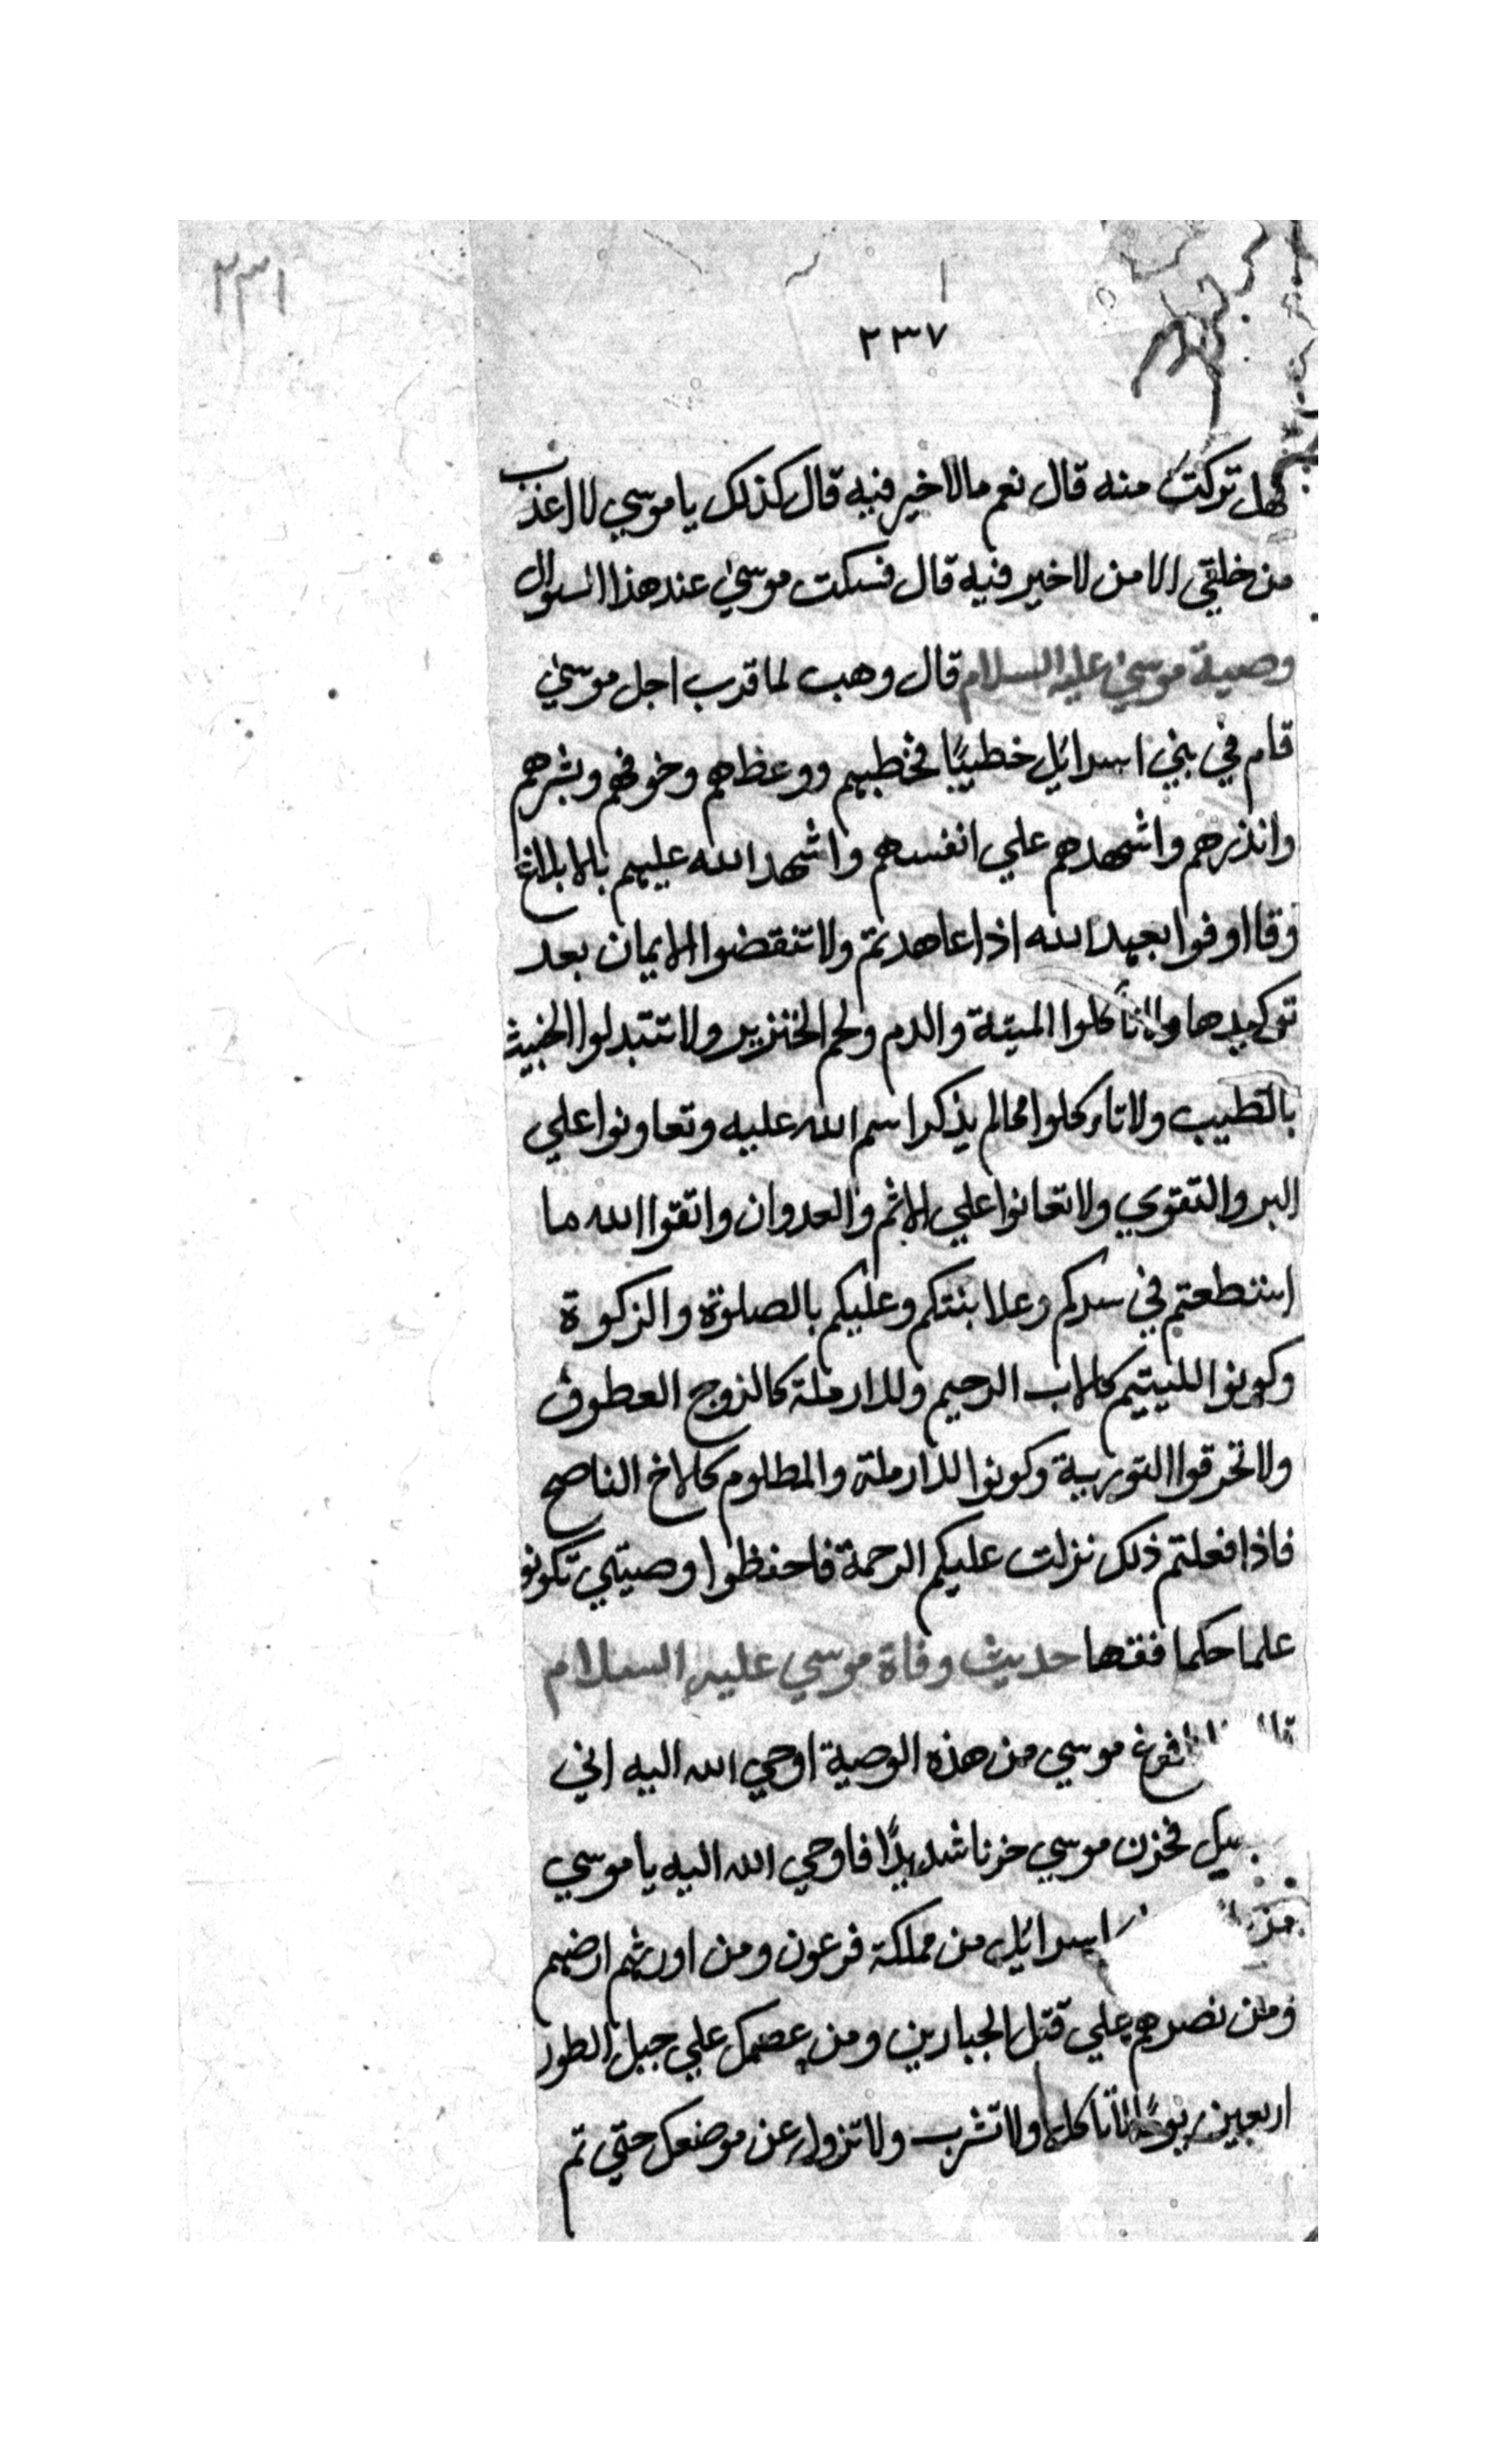 ٢٣١
٢٣٧
فهل تركت منه قال نعم مالا خير فيه قال كذلك يا موسي لا اعذب
من خلقي الا من لا خير فيه قال فسكت موسي عند هذا السوال
وصية موسي عليه السلام قال وهب لما قرب اجل موسي
قام في بني اسرائيل خطيبًا فخطبهم ووعظهم وخوفهم وبشرهم
وانذرهم واشهدهم علي انفسهم واشهد الله عليهم بالابلاغ
وقا اوفوا بعهد الله اذا عاهدتم ولا تنقضوا الايمان بعد
توكيدها ولا تأكلوا الميتة والدم ولحم الخنزير ولا تتبدلوا الخبيث
بالطيب ولا تاكلوا مما لم يذكر اسم الله عليه وتعاونوا علي
البر والتقوي ولا تعانوا علي الاثم والعدوان واتقوا الله ما
استطعتم في سركم وعلانيتكم وعليكم بالصلوة والزكوة
وكونوا لليتيم كالاب الرحيم وللارملة كالزوج العطوف
ولا تحرقوا التورية وكونوا للارملة والمظلوم كالاخ الناصح
فاذا فعلتم ذلك نزلت عليكم الرحمة فاحفظوا وصيتي تكونو
علما حكما فقها حديث وفاة موسي عليه السلام
فرغ موسي من هذه الوصية اوحي الله اليه اني
فحزن موسي حزنا شديدًا فاوحي الله اليه يا موسي
اسرائيل من مملكة فرعون ومن اورثهم ارضهم
ومن نصرهم علي قتل الجبارين ومن عصمك علي جبل الطور
اربعين يومًا لا تأكل ولا تشرب ولا تزول عن موضعك حتي تم